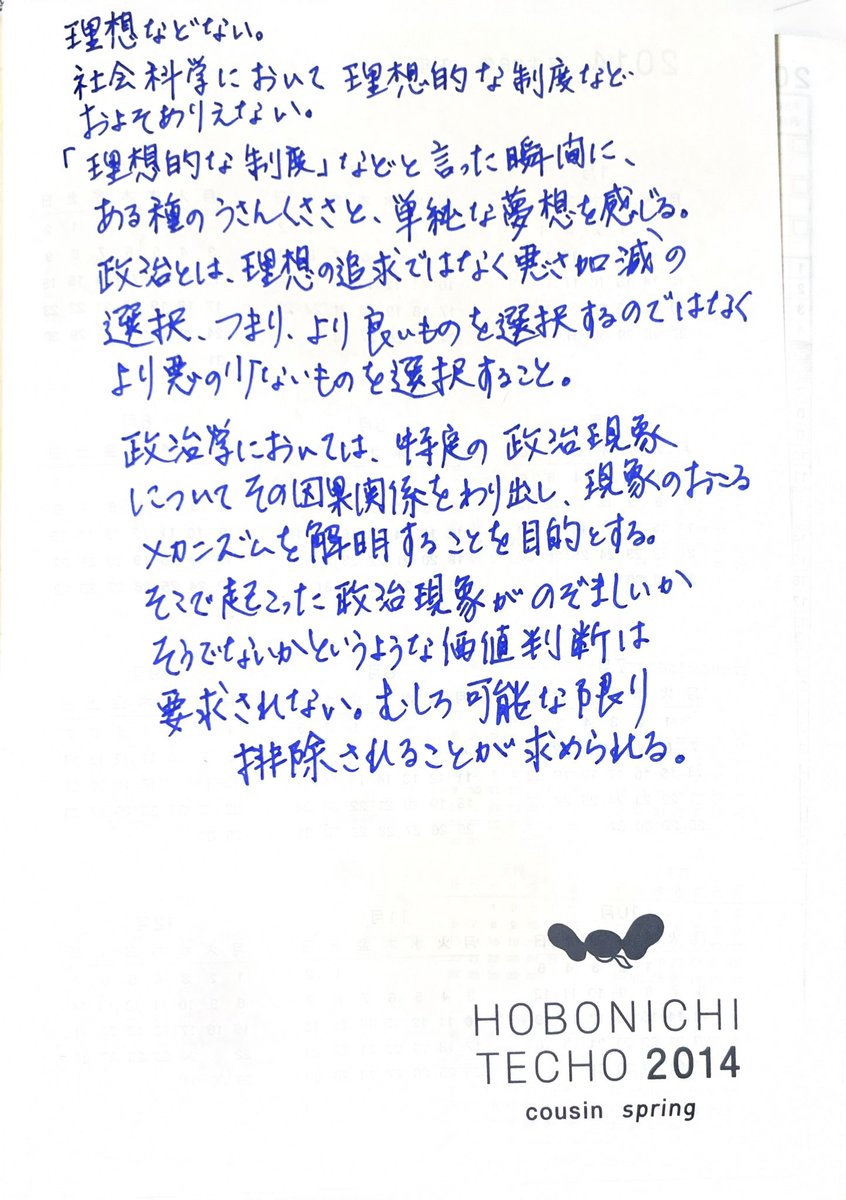 理想などない。
社会科学において理想的な制度など
およそありえない。
「理想的な制度」などと言った瞬間に、
ある種のうさんくささと、単純な夢想を感じる。
政治とは、理想の追求ではなく“悪さ加減”の
選択、つまり、より良いものを選択するのではなく
より悪の少ないものを選択すること。
政治学においては、特定の政治現象
についてその因果関係をわり出し、現象のおこる
メカニズムを解明することを目的とする。
そこで起こった政治現象がのぞましいか
そうでないかというような価値判断は
要求されない。むしろ可能な限り
排除されることが求められる。
HOBONICHI
TECHO 2014
cousin spring